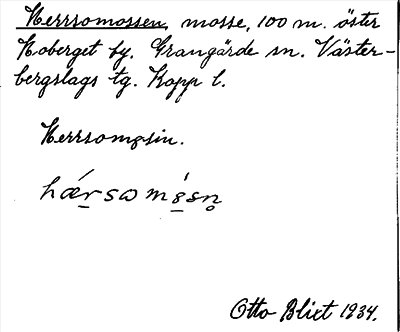 Herrsomossen, mosse, 100 m. öster
Hoberget by. Grangärde sn. Väster-
bergslags tg. Kopp l.
Herrsomosin.
Otto Blixt 1934.